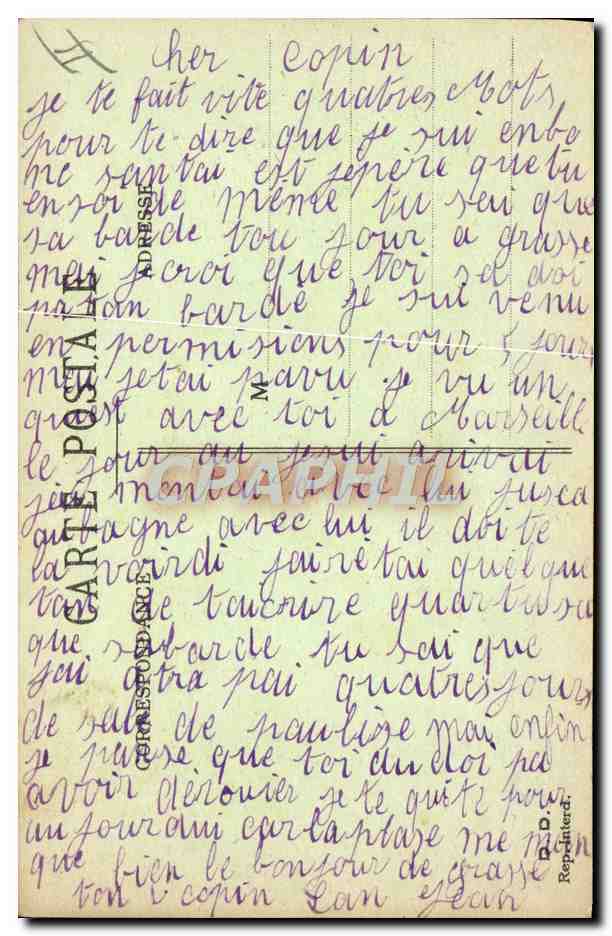 cher copin
je te fait vite quatres Mots
pour te dire que je sui enbo
ne santai est jepère que tu
ensoi de meme tu sai que
sa barde tou jour a grasse
mai jcroi que toi sa doi
pa tan bardé je sui venu
en permisions pour 5 jours
mai jetai pavu je vu un
qui est avec toi a Marseill
le jour au jesui arivai
jai montai avec lui jusca
aubagne avec lui il doi te
la voirdi jairetai quelque
tan de taicrire quar tu sa
que sabarde tu sai que
jai atra pai quatres jours
de sale de paulise mai enfin
je panse que toi andoi pa
avoir dérouier je te quite pour
aujourdui car la plase me man
que bien le bonjour de grasse
ton copin Jean
CARTE POSTALE
CORRESPONDANCE
ADRESSE
M
D.D.
Rep. Interd.
CPAPHIL